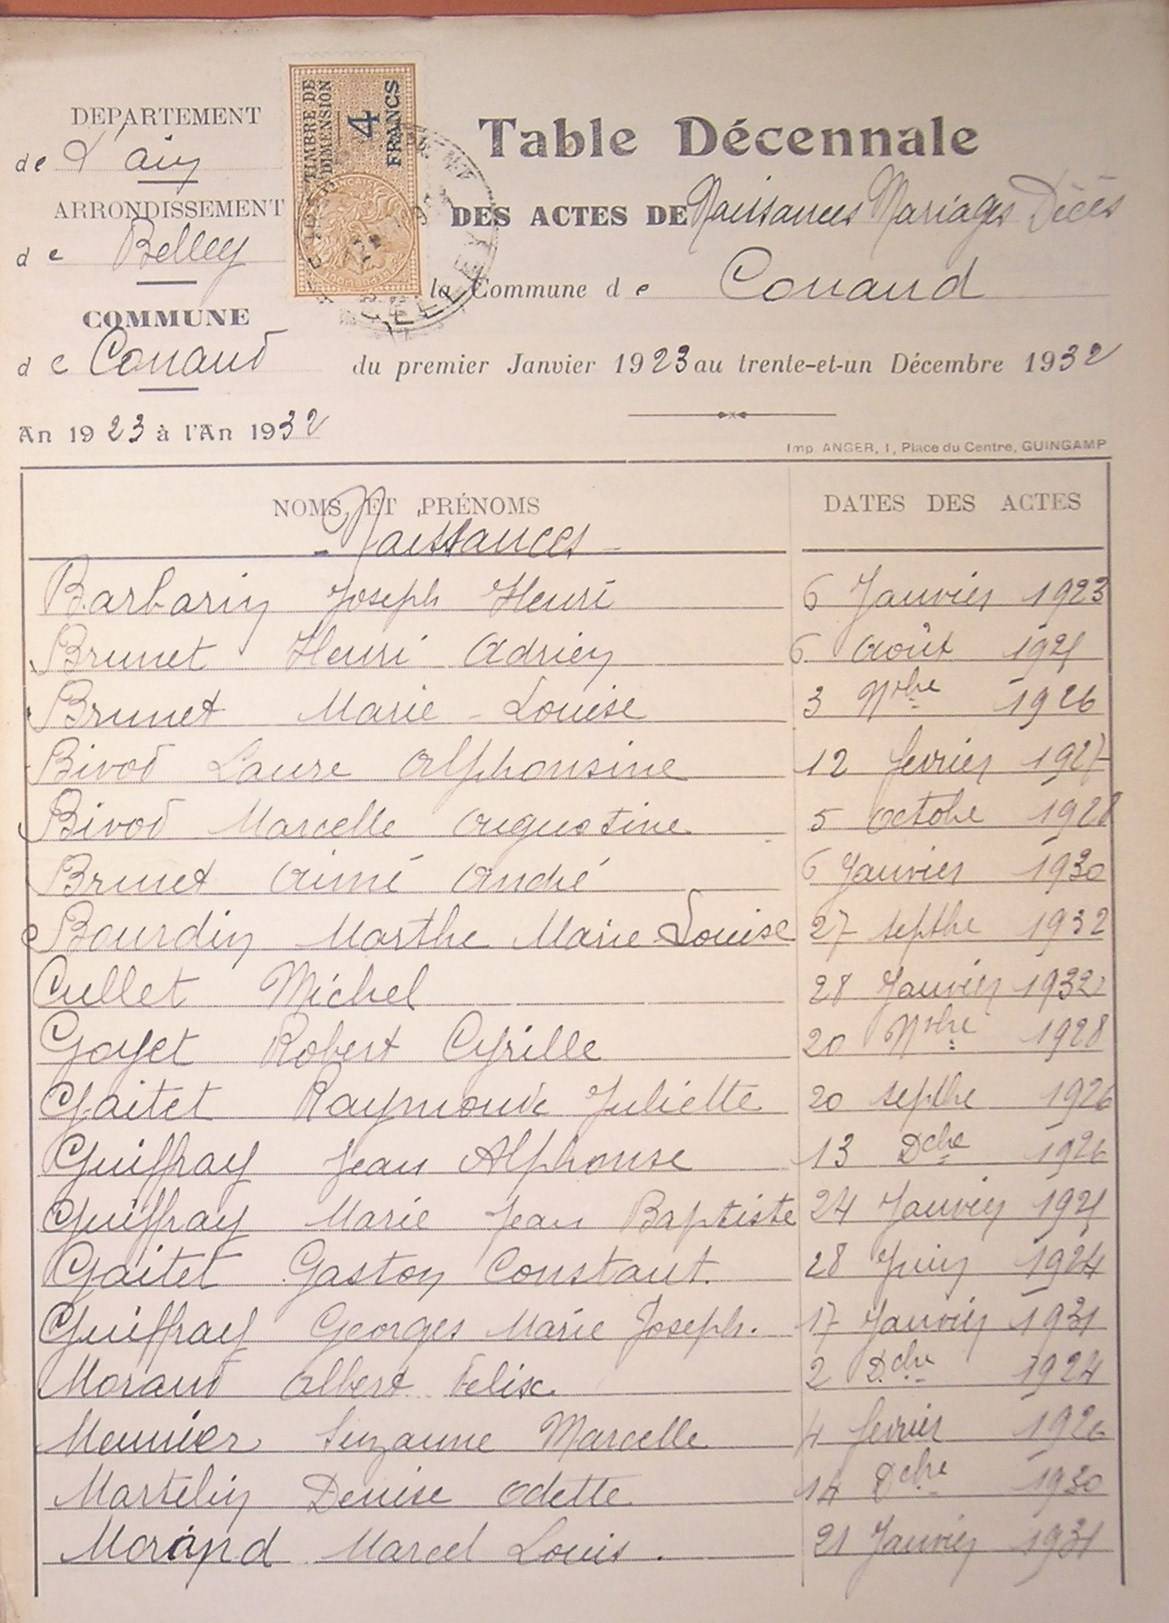 DEPARTEMENT
de L'ain
ARRONDISSEMENT
de Belley
COMMUNE
de Conand
An 1923 à l'An 1932
TIMBRE DE
DIMENSION
4
FRANCS
Table Décennale
DES ACTES DE Naissances Mariages Décès
la Commune de Conand
du premier Janvier 1923 au trente-et-un Décembre 1932
Imp. ANGER, 1, Place du Centre, GUINGAMP
NOMS ET PRÉNOMS DATES DES ACTES
- Naissances -
Barbarin Joseph Henri 6 Janvier 1923
Brunet Henri Adrien 6 Août
Brunet Marie-Louise 3 Nbre 1926
Bivod Laure Alphonsine 12 fevrier 1927
Bivod Marcelle Augustine 5 Octobre 1928
Brunet Aimé André 6 Janvier 1930
Bourdin Marthe Marie Louise 27 septbre 1932
Cullet Michel 28 Janvier 1932
Goyet Robert Cyrille 20 Nbre 1928
Gaitet Raymonde Juliette 20 septbre 1926
Guiffray Jean Alphonse 13 Dcbre 1926
Guiffray Marie Jean Baptiste 24 Janvier
Gaitet Gaston Constant. 28 Juin 1924
Guiffray Georges Marie Joseph. 17 Janvier 1931
Morand Albert Felix 2 Dcbre 1924
Meunier Suzanne Marcelle 4 fevrier 1926
Martelin Denise Odette 14 Dcbre 1930
Morand Marcel Louis. 21 Janvier 1931